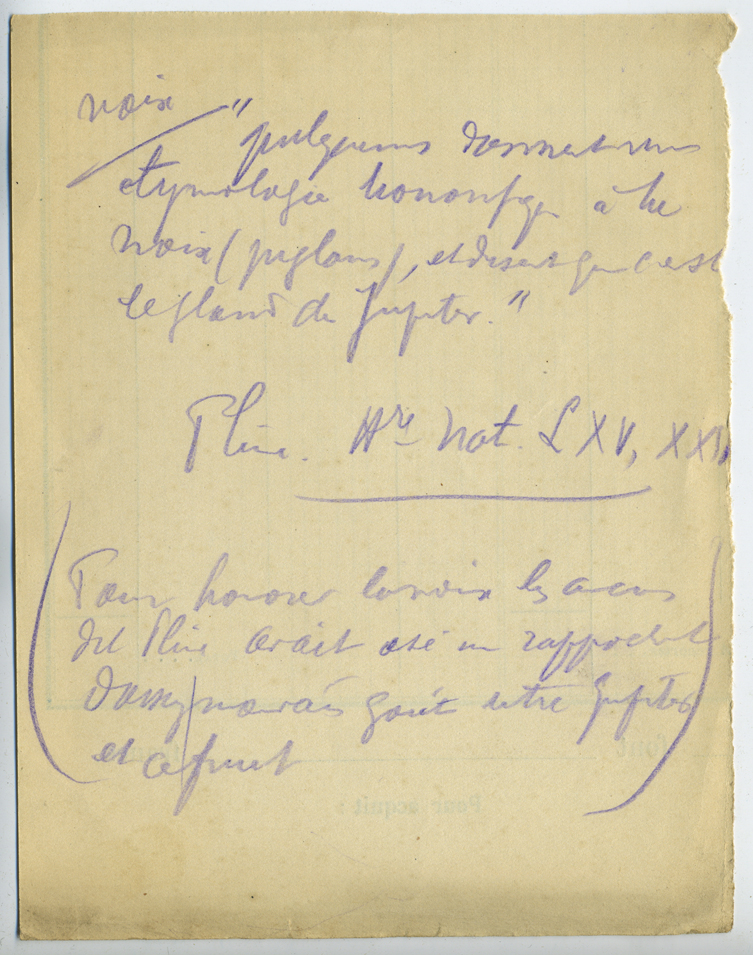 noix
"quelques uns donnent une
étymologie honorifique à la
noix (juglans), et disent que c'est
le gland de Jupiter."
Pline. Hre Nat. L XV, XXI
(Pour honorer la noix les
dit Pline avait osé un rapprocht
mauvais goût entre Jupiter
et ce fruit)
Pour acquit :